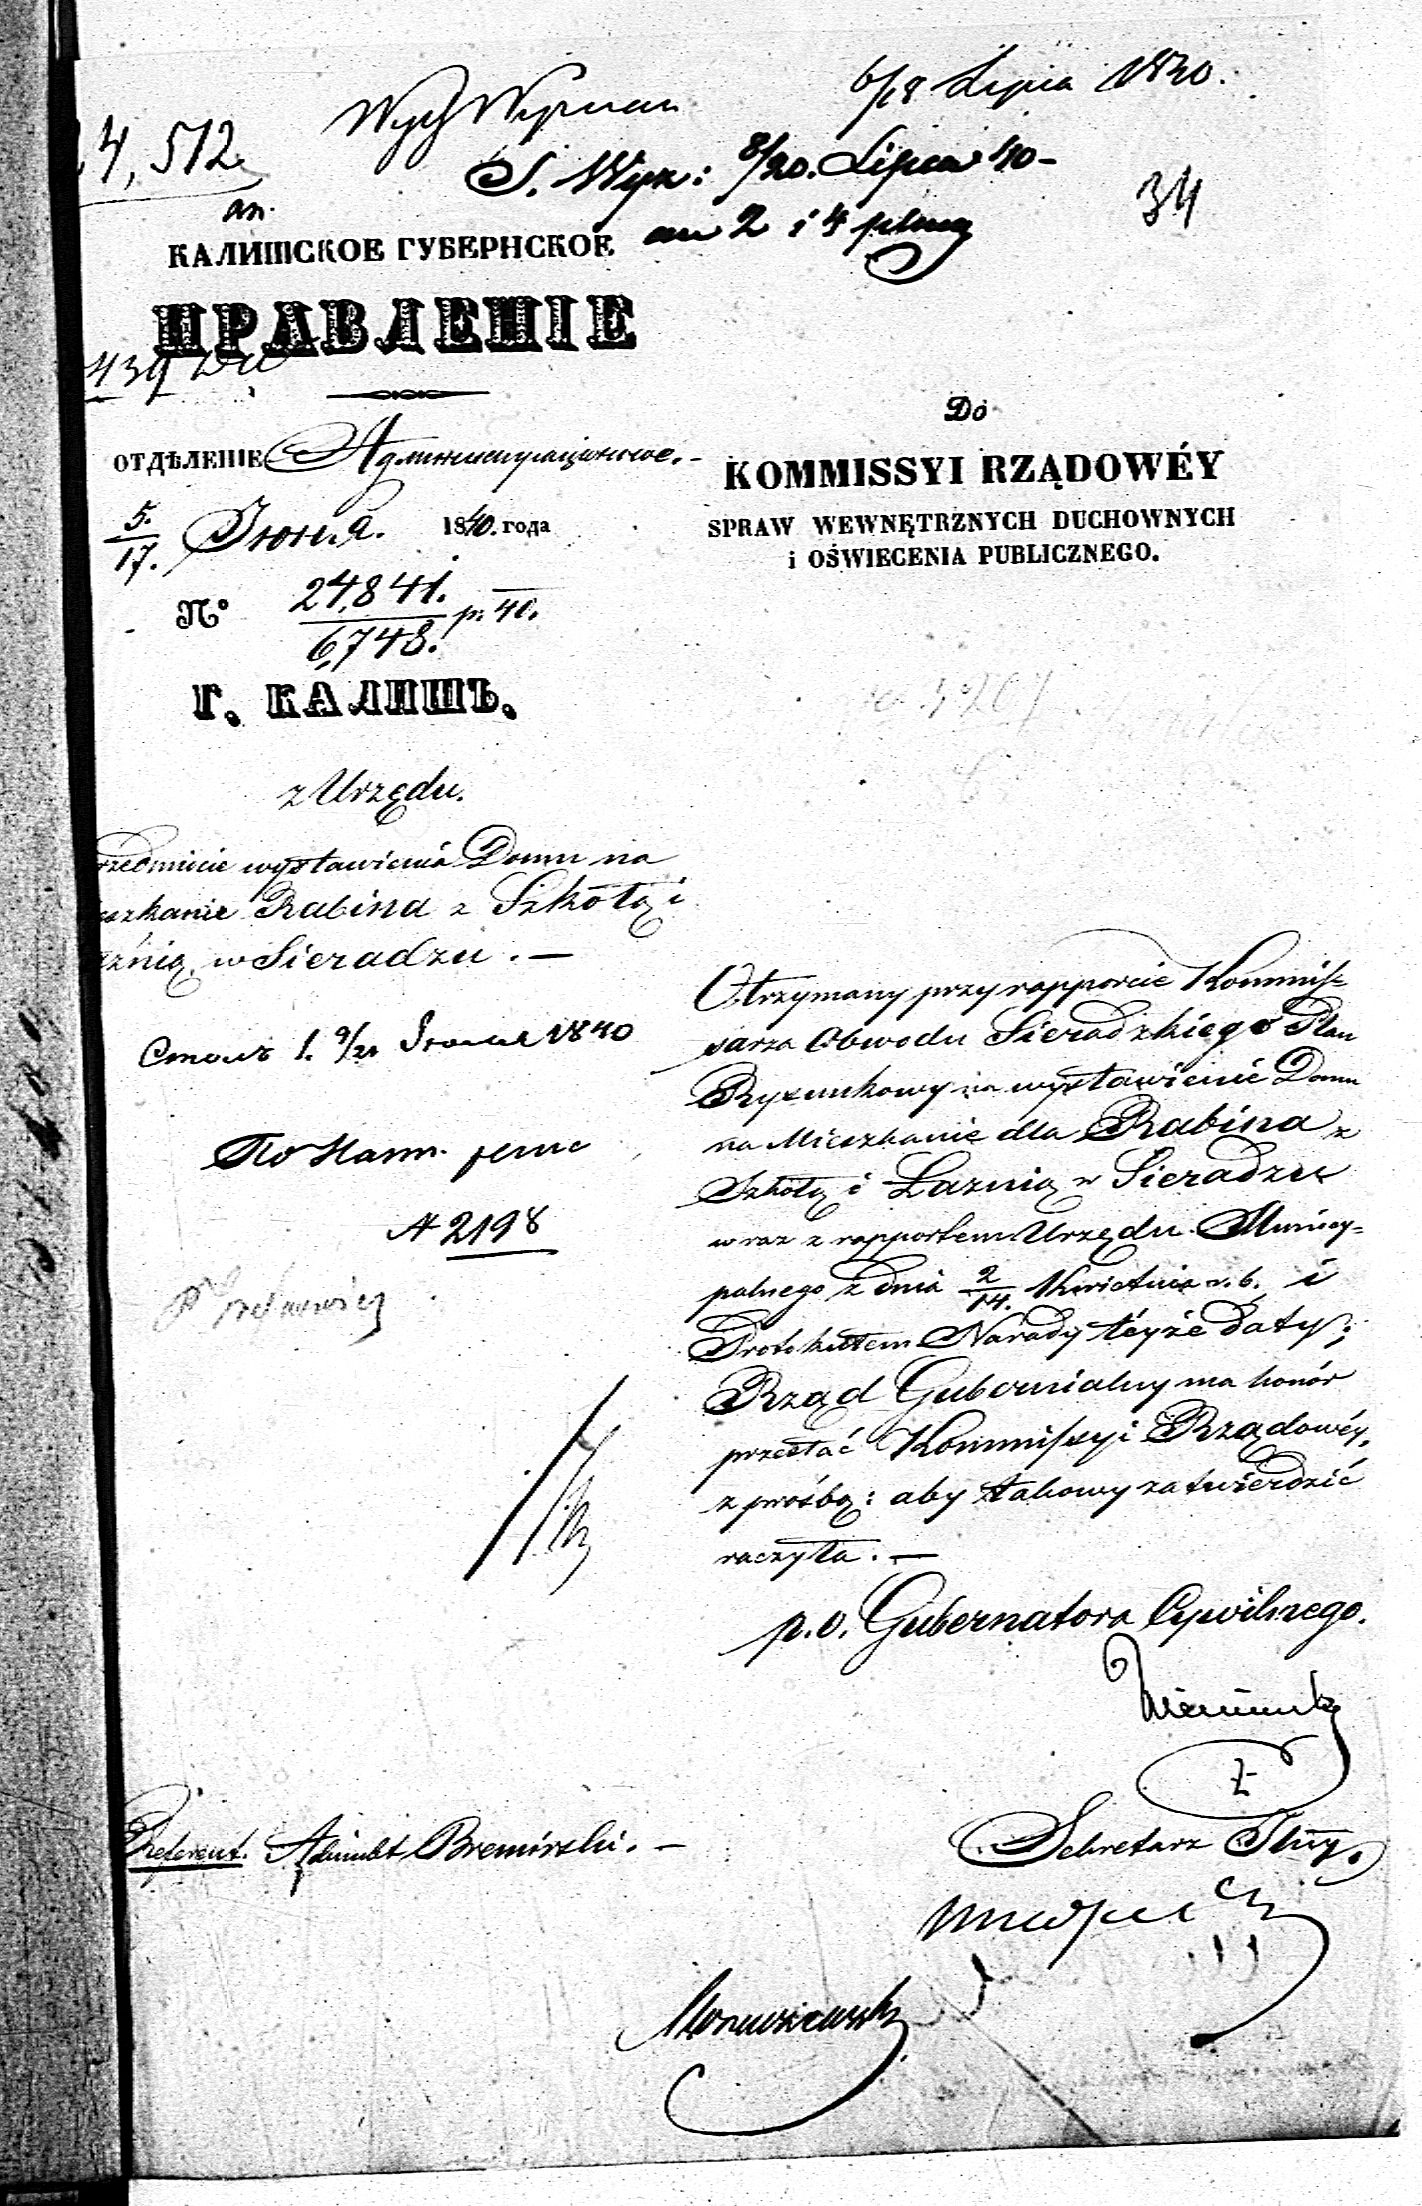 6/18 Lipca 1840.
4,512
8/20. Lipca 40 -
2 i 4
34
КАЛИШСКОЕ ГУБЕРНСКОЕ
ПРАВЛЕНІЕ
439
ОТДѢЛЕНІЕ Администраціонное. -
5./17. Іюня. 1840. года
№ 24,841./6,748. p. 40.
Г. КАЛИШЪ.
Do
KOMMISSYI RZĄDOWÉY
SPRAW WEWNĘTRZNYCH DUCHOWNYCH
i OŚWIECENIA PUBLICZNEGO.
z Urzędu.
rzedmiocie wystawienia Domu na
szkanie Rabina z Szkołą i
aźnią w Sieradzu. -
9/21 1840
2198
Otrzymany przy rapporcie Kommis-
sarza Obwodu Sieradzkiego Plan
Rysunkowy na wystawienie Domu
na Mieszkanie dla Rabina z
Szkołą i Łaznią w Sieradzu
wraz z rapportem Urzędu Municy-
palnego z dnia 2/14. Kwietnia r. b. i
Protokułem Narady téyże daty;
Rząd Gubernialny ma honór
przesłać Kommissyi Rządowéy,
z prośbą: aby takowy zatwierdzić
raczyła. -
p. o. Gubernatora Cywilnego.
Referent. Adjunkt -
Sekretarz